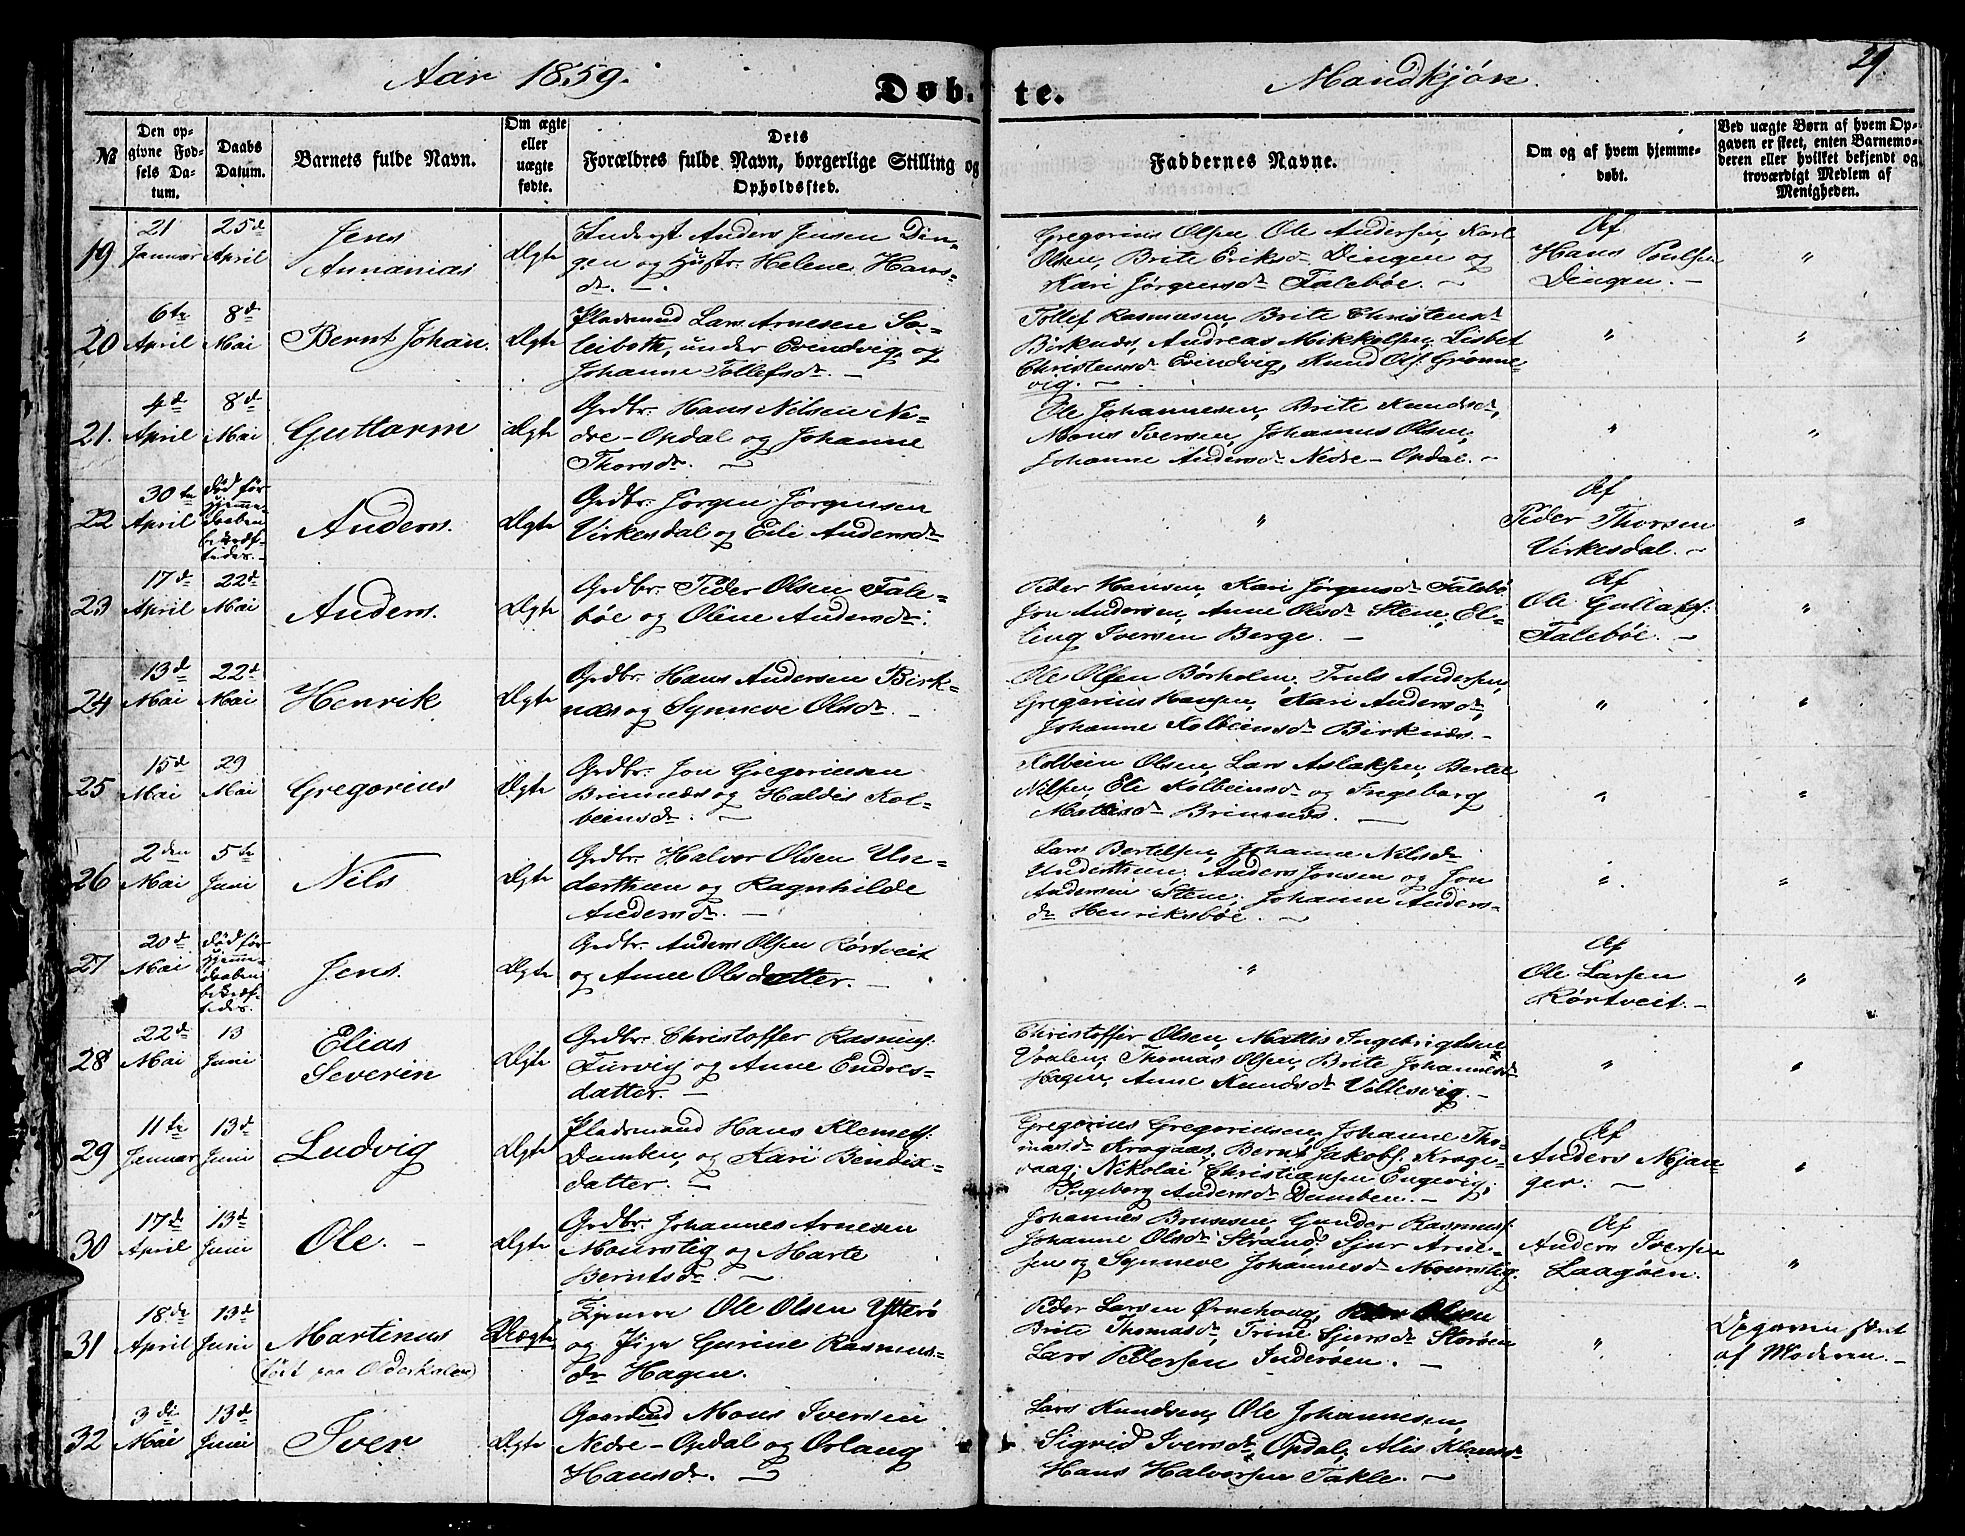 Aar 1859.
Døb-
te.
Mandkjøn.
29
№
Den op-
givne Fød-
sels Da-
tum.
Daabs
Datum.
Barnets fulde Navn.
Om ægte
eller
uægte
fødte.
Dets
Forældres fulde Navn, borgerlige Stilling og
Opholdssted.
Faddernes Navne.
Om og af hvem hjemme-
døbt.
Ved uægte Børn af hvem Op-
gaven er skeet, enten Barnemo-
deren eller hvilket bekjendt og
troværdigt Medlem af
Menigheden.
19
21
Januar
25de
April
Jens
Annanias
Ægte
Anders Jensen Din-
gen og Hustr. Helene Hans-
dr. —
Gregorius Olsen, Ole Andersen, Karl
Olsen, Brite Eriksdr Dingen og
Kari Jørgensdr Falebøe. —
Af
Hans Poulsen
Dingen. —
"
20
6te
April
8de
Mai
Bernt Johan.
Ægte
Pladsmand Lars Arnesen So-
leiboth, under Evindvig, og
Johanne Tollefsdr. —
Tollef Rasmusen, Brite Christensdr
Birknæs, Andreas Mikkelsen, Lisbet
Christensdr Evindvig, Knud Ols. Grønne-
vig. —
"
"
21.
4de
April
8de
Mai
Guttorm
Ægte
Grdbr. Hans Nilsen Ne-
dre-Opdal og Johanne
Thorsdr. —
Ole Johannesen, Brite Knudsdr,
Mons Iversen, Johannes Olsen,
Johanne Andersdr Nedre-Opdal. —
"
"
22
30te
April
død før
hjemme-
daaben
bekræf-
tedes. —
Anders.
Ægte
Grdbr. Jørgen Jørgensen
Virkesdal og Eli Andersdr
"
Af
Peder Thorsen
Virkesdal. —
"
23
17de
April
22de
Mai
Anders.
Ægte
Grdbr. Peder Olsen Fale-
bøe og Oline Andersdr.
Peder Hansen, Kari Jørgensdr Falebø
Jon Andersen, Anne Olsdr Stene, El-
ling Iversen Berge. —
Af
Ole Guttofs.
Falebøe. —
"
24
13de
Mai
22de
Mai
Henrik
Ægte
Grdbr. Hans Andersen Birk-
næs og Synneve Olsdr. —
Ole Olsen Børholm, Truls Andersen,
Gregorius Hansen, Kari Andersdr,
Johanne Kolbeinsdr Birknæs. —
"
"
25
15de
Mai
29
Mai
Gregorius
Ægte
Grdbr. Jon Gregoriusen
Brimnæs og Haldis Kol-
beinsdr. —
Kolbein Olsen, Lars Aslaksen, Bertel
Nilsen, Eli Kolbeinsdr og Ingeborg
Mattisdr Brimnæs. —
"
"
26
2den
Mai
5te
Juni
Nils
Ægte
Grdbr. Halvor Olsen Un-
derthun og Ragnhilde
Andersdr. —
Lars Bertelsen, Johanne Nilsdr
Underthun, Anders Jonsen og Jon
Andersen Stene, Johanne Anders-
dr Henriksbøe. —
"
"
27
20de
Mai
død før
hjemme-
daaben
bekræf-
tedes.
Jens.
Ægte
Grdbr. Anders Olsen Rørtveit
og Anne Olsdatter. —
"
Af
Ole Larsen
Rørtveit. —
"
28
22de
Mai
13
Juni
Elias
Severin
Ægte
Grdbr. Christoffer Rasmus.
Furvig og Anne Endres-
datter. —
Christoffer Olsen, Mattis Ingebrigtsen
Vaalen, Thomas Olsen, Brite Johannesdr
Hagen, Anne Knudsdr Vollesvig. —
"
"
29
11te
Januar
13de
Juni
Ludvig
Ægte
Pladsmand Hans Klemets.
Dumben, og Kari Bendix-
datter. —
Gregorius Gregoriusen, Johanne Tho-
masdr Kragaas, Bernt Jakobs. Krage-
vaag, Nikolai Christiansen Engevig,
Ingeborg Andersdr Dumben. —
Af
Anders Mjan-
ger. —
"
30
17de
April
13de
Juni
Ole. —
Ægte
Grdbr. Johannes Arnesen
Mourstig og Marte
Berntsdr. —
Johannes Brusesen, Gunder Rasmus.
Johanne Olsdr Strand, Sjur Arne-
sen og Synneve Johannesdr Mourstig.
Af
Anders Iversen
Laagøen.
"
31
18de
April
13de
Juni
Martinus
(født paa Olderkalen)
Uægte
Tjenere Ole Olsen Ytterø
og Pige Gurine Rasmus-
dr Hagen.
Peder Larsen Ørnehoug,
Brite Thomasdr, Trine Sjursdr Storøen
Lars Pedersen Inderøen. —
"
Opgaven skeet
af Moderen. —
32
3die
Mai
13de
Juni
Iver
Ægte
Gaardmd Mons Iversen
Nedre-Opdal og Ørlaug
Hansdr. —
Lars Knudsen, Ole Johannesen,
Sigrid Iversdr, Opdal, Alis Klausdr
Hans Halvorsen Takle. —